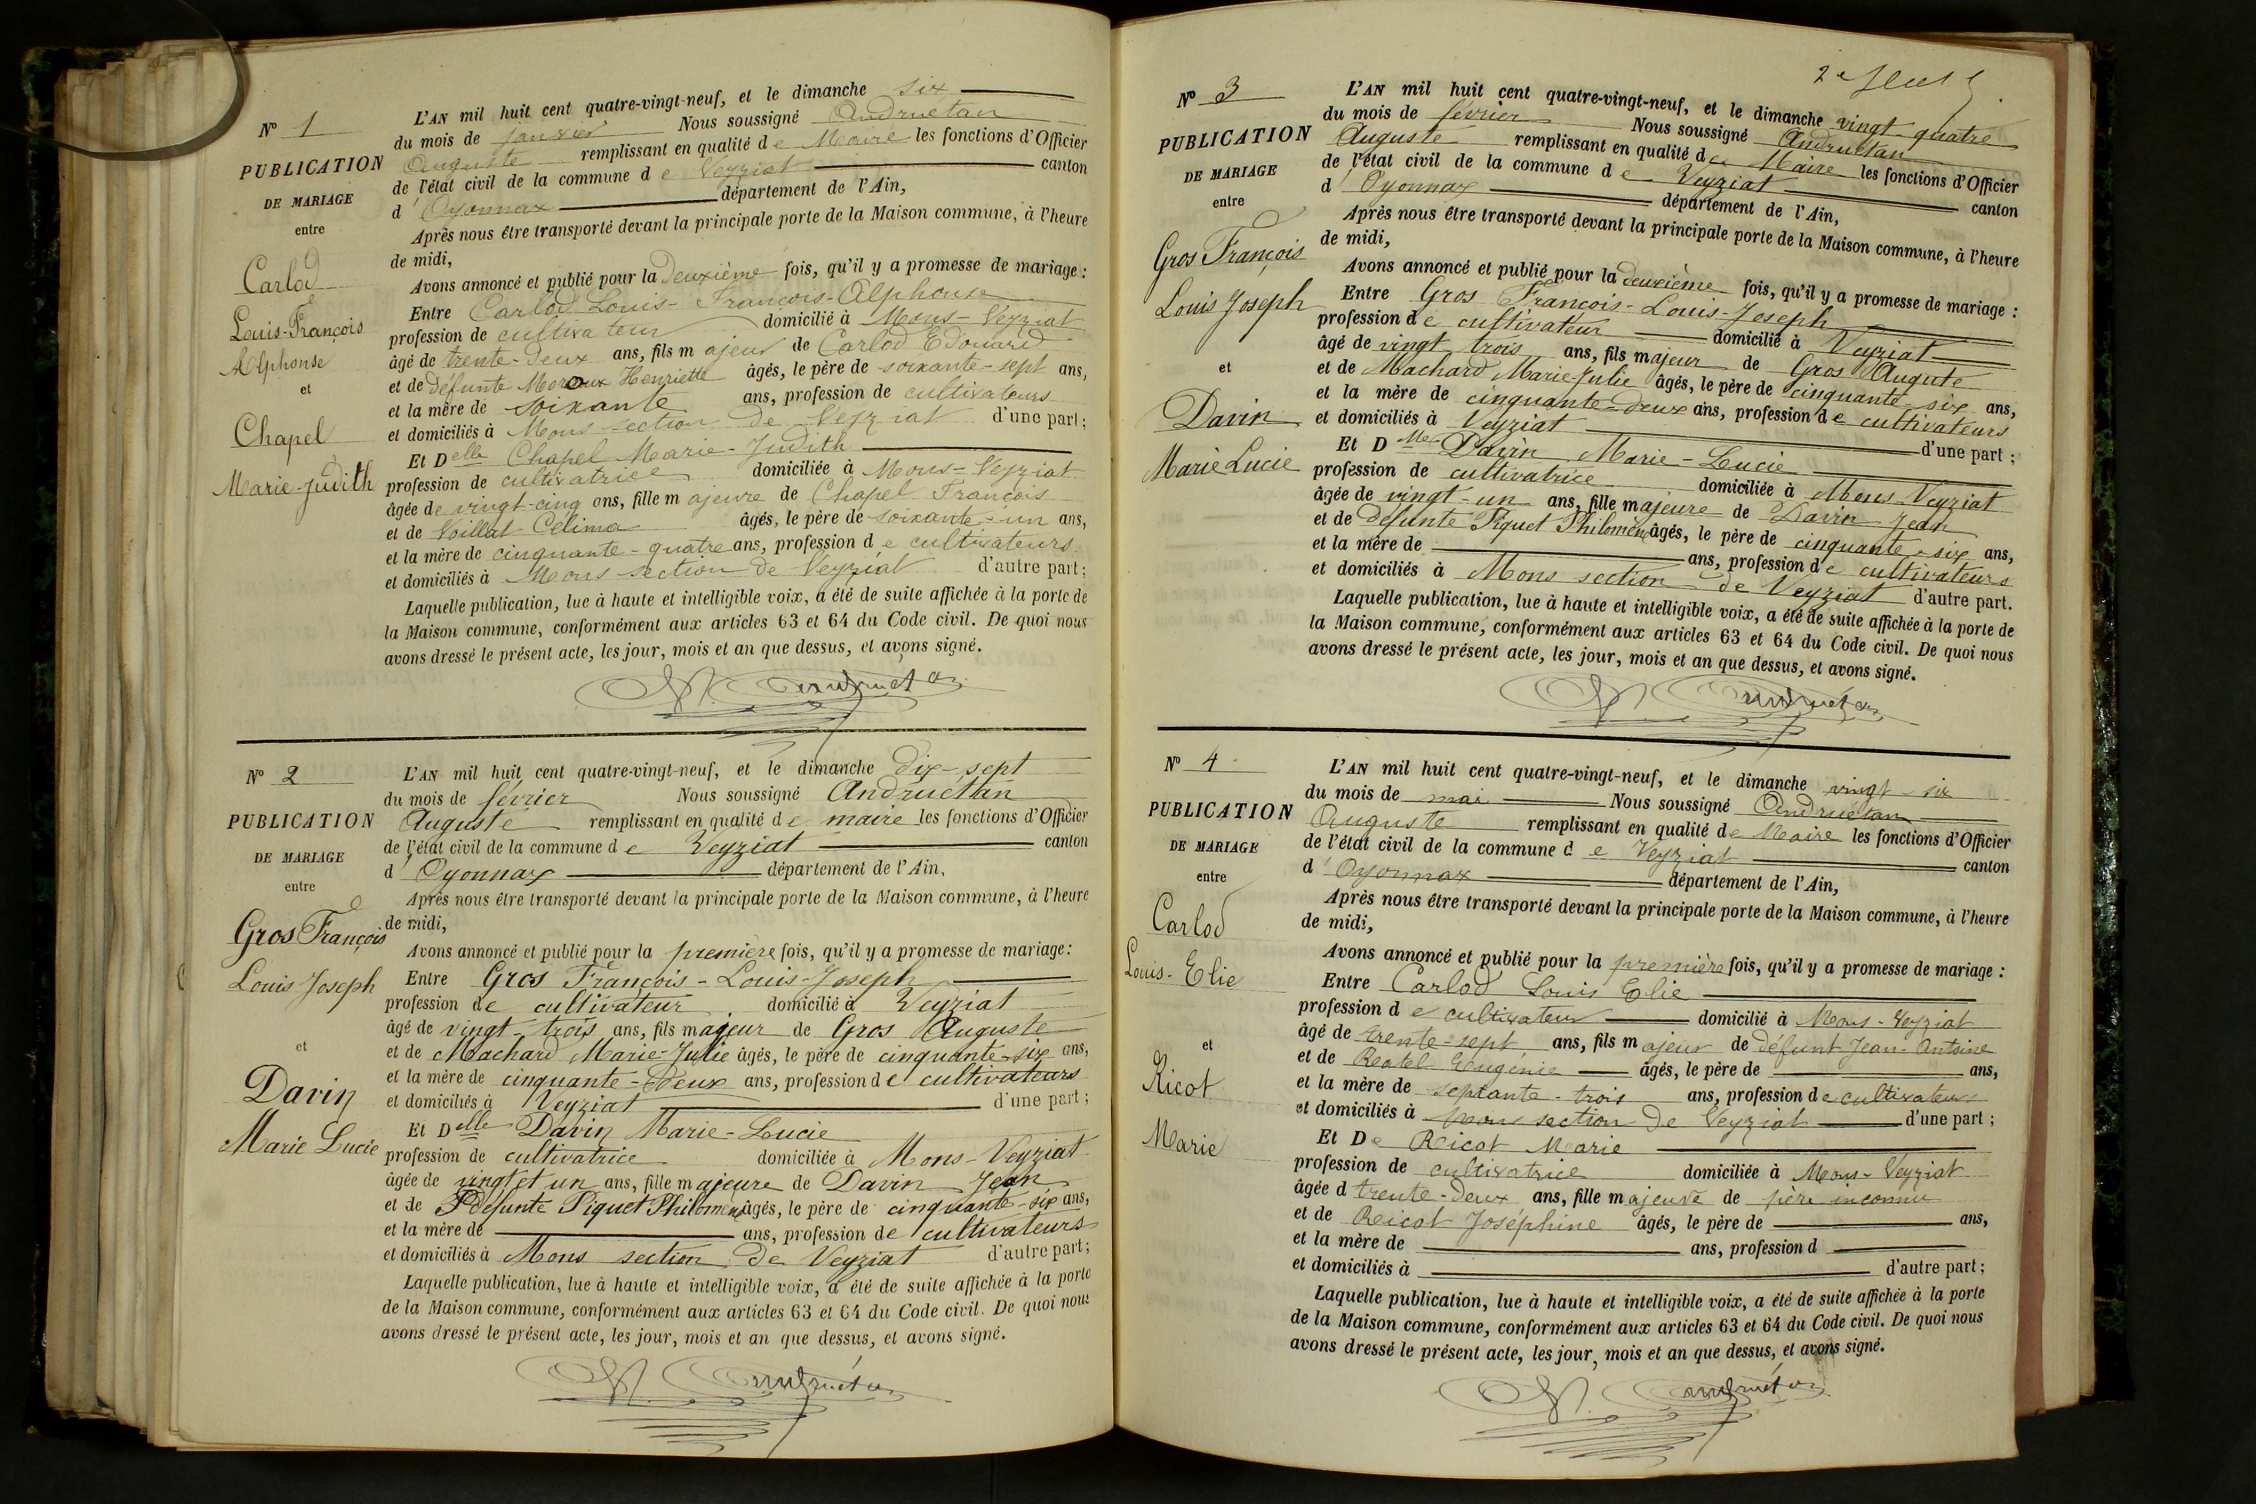 N° 1
PUBLICATION
DE MARIAGE
entre
Carlod
Louis-François
Alphonse
et
Chapel
Marie-Judith
L'AN mil huit cent quatre-vingt-neuf, et le dimanche six
du mois de janvier Nous soussigné Andruétan
Auguste remplissant en qualité de Maire les fonctions d'Officier
de l'état civil de la commune de Veyziat canton
d'Oyonnax département de l'Ain,
Après nous être transporté devant la principale porte de la Maison commune, à l'heure
de midi,
Avons annoncé et publié pour la Deuxième fois, qu'il y a promesse de mariage :
Entre Carlod Louis-François-Alphonse
profession de cultivateur domicilié à Mons-Veyziat
âgé de trente-deux ans, fils majeur de Carlod Edouard
et de défunte Henriette âgés, le père de soixante-sept ans,
et la mère de soixante ans, profession de cultivateurs
et domiciliés à Mons section de Veyziat d'une part ;
Et Delle Chapel Marie-Judith
profession de cultivatrice domiciliée à Mons-Veyziat
âgée de vingt-cinq ans, fille majeure de Chapel François
et de Voillat Célima âgés, le père de soixante-un ans,
et la mère de cinquante-quatre ans, profession de cultivateurs
et domiciliés à Mons section de Veyziat d'autre part ;
Laquelle publication, lue à haute et intelligible voix, a été de suite affichée à la porte de
la Maison commune, conformément aux articles 63 et 64 du Code civil. De quoi nous
avons dressé le présent acte, les jour, mois et an que dessus, et avons signé.
Andruétan
N° 2
PUBLICATION
DE MARIAGE
entre
Gros François
Louis Joseph
et
Davin
Marie Lucie
L'AN mil huit cent quatre-vingt-neuf, et le dimanche dix-sept
du mois de février Nous soussigné Andruétan
Auguste remplissant en qualité de maire les fonctions d'Officier
de l'état civil de la commune de Veyziat canton
d'Oyonnax département de l'Ain,
Après nous être transporté devant la principale porte de la Maison commune, à l'heure
de midi,
Avons annoncé et publié pour la première fois, qu'il y a promesse de mariage :
Entre Gros François-Louis-Joseph
profession de cultivateur domicilié à Veyziat
âgé de vingt-trois ans, fils majeur de Gros Auguste
et de Machard Marie-Julie âgés, le père de cinquante-six ans,
et la mère de cinquante-deux ans, profession de cultivateurs
et domiciliés à Veyziat d'une part ;
Et Delle Davin Marie-Lucie
profession de cultivatrice domiciliée à Mons-Veyziat
âgée de vingt et un ans, fille majeure de Davin Jean
et de défunte Piquet Philomène âgés, le père de cinquante-six ans,
et la mère de ans, profession de cultivateurs
et domiciliés à Mons section de Veyziat d'autre part ;
Laquelle publication, lue à haute et intelligible voix, a été de suite affichée à la porte
de la Maison commune, conformément aux articles 63 et 64 du Code civil. De quoi nous
avons dressé le présent acte, les jour, mois et an que dessus, et avons signé.
Andruétan
2e
N° 3
PUBLICATION
DE MARIAGE
entre
Gros François
Louis Joseph
et
Davin
Marie Lucie
L'AN mil huit cent quatre-vingt-neuf, et le dimanche vingt-quatre
du mois de février Nous soussigné Andruétan
Auguste remplissant en qualité de Maire les fonctions d'Officier
de l'état civil de la commune de Veyziat canton
d'Oyonnax département de l'Ain,
Après nous être transporté devant la principale porte de la Maison commune, à l'heure
de midi,
Avons annoncé et publié pour la deuxième fois, qu'il y a promesse de mariage :
Entre Gros François-Louis-Joseph
profession de cultivateur domicilié à Veyziat
âgé de vingt trois ans, fils majeur de Gros Augute
et de Machard Marie-Julie âgés, le père de cinquante-six ans,
et la mère de cinquante-deux ans, profession de cultivateurs
et domiciliés à Veyziat d'une part ;
Et D Davin Marie-Lucie
profession de cultivatrice domiciliée à Mons Veyziat
âgée de vingt-un ans, fille majeure de Davin Jean
et de défunte Piquet Philomène âgés, le père de cinquante-six ans,
et la mère de ans, profession de cultivateurs
et domiciliés à Mons section de Veyziat d'autre part.
Laquelle publication, lue à haute et intelligible voix, a été de suite affichée à la porte de
la Maison commune, conformément aux articles 63 et 64 du Code civil. De quoi nous
avons dressé le présent acte, les jour, mois et an que dessus, et avons signé.
Andruétan
N° 4
PUBLICATION
DE MARIAGE
entre
Carlod
Louis-Elie
et
Ricot
Marie
L'AN mil huit cent quatre-vingt-neuf, et le dimanche vingt-six
du mois de mai Nous soussigné Andruétan
Auguste remplissant en qualité de Maire les fonctions d'Officier
de l'état civil de la commune de Veyziat canton
d'Oyonnax département de l'Ain,
Après nous être transporté devant la principale porte de la Maison commune, à l'heure
de midi,
Avons annoncé et publié pour la première fois, qu'il y a promesse de mariage :
Entre Carlod Louis Elie
profession de cultivateur domicilié à Mons-Veyziat
âgé de trente-sept ans, fils majeur de défunt Jean-Antoine
et de Eugénie âgés, le père de ans,
et la mère de septante-trois ans, profession de cultivateur
et domiciliés à Mons section de Veyziat d'une part ;
Et De Ricot Marie
profession de cultivatrice domiciliée à Mons-Veyziat
âgée d trente-deux ans, fille majeure de père inconnu
et de Ricot Joséphine âgés, le père de ans,
et la mère de ans, profession d
et domiciliés à d'autre part ;
Laquelle publication, lue à haute et intelligible voix, a été de suite affichée à la porte
de la Maison commune, conformément aux articles 63 et 64 du Code civil. De quoi nous
avons dressé le présent acte, les jour, mois et an que dessus, et avons signé.
Andruétan